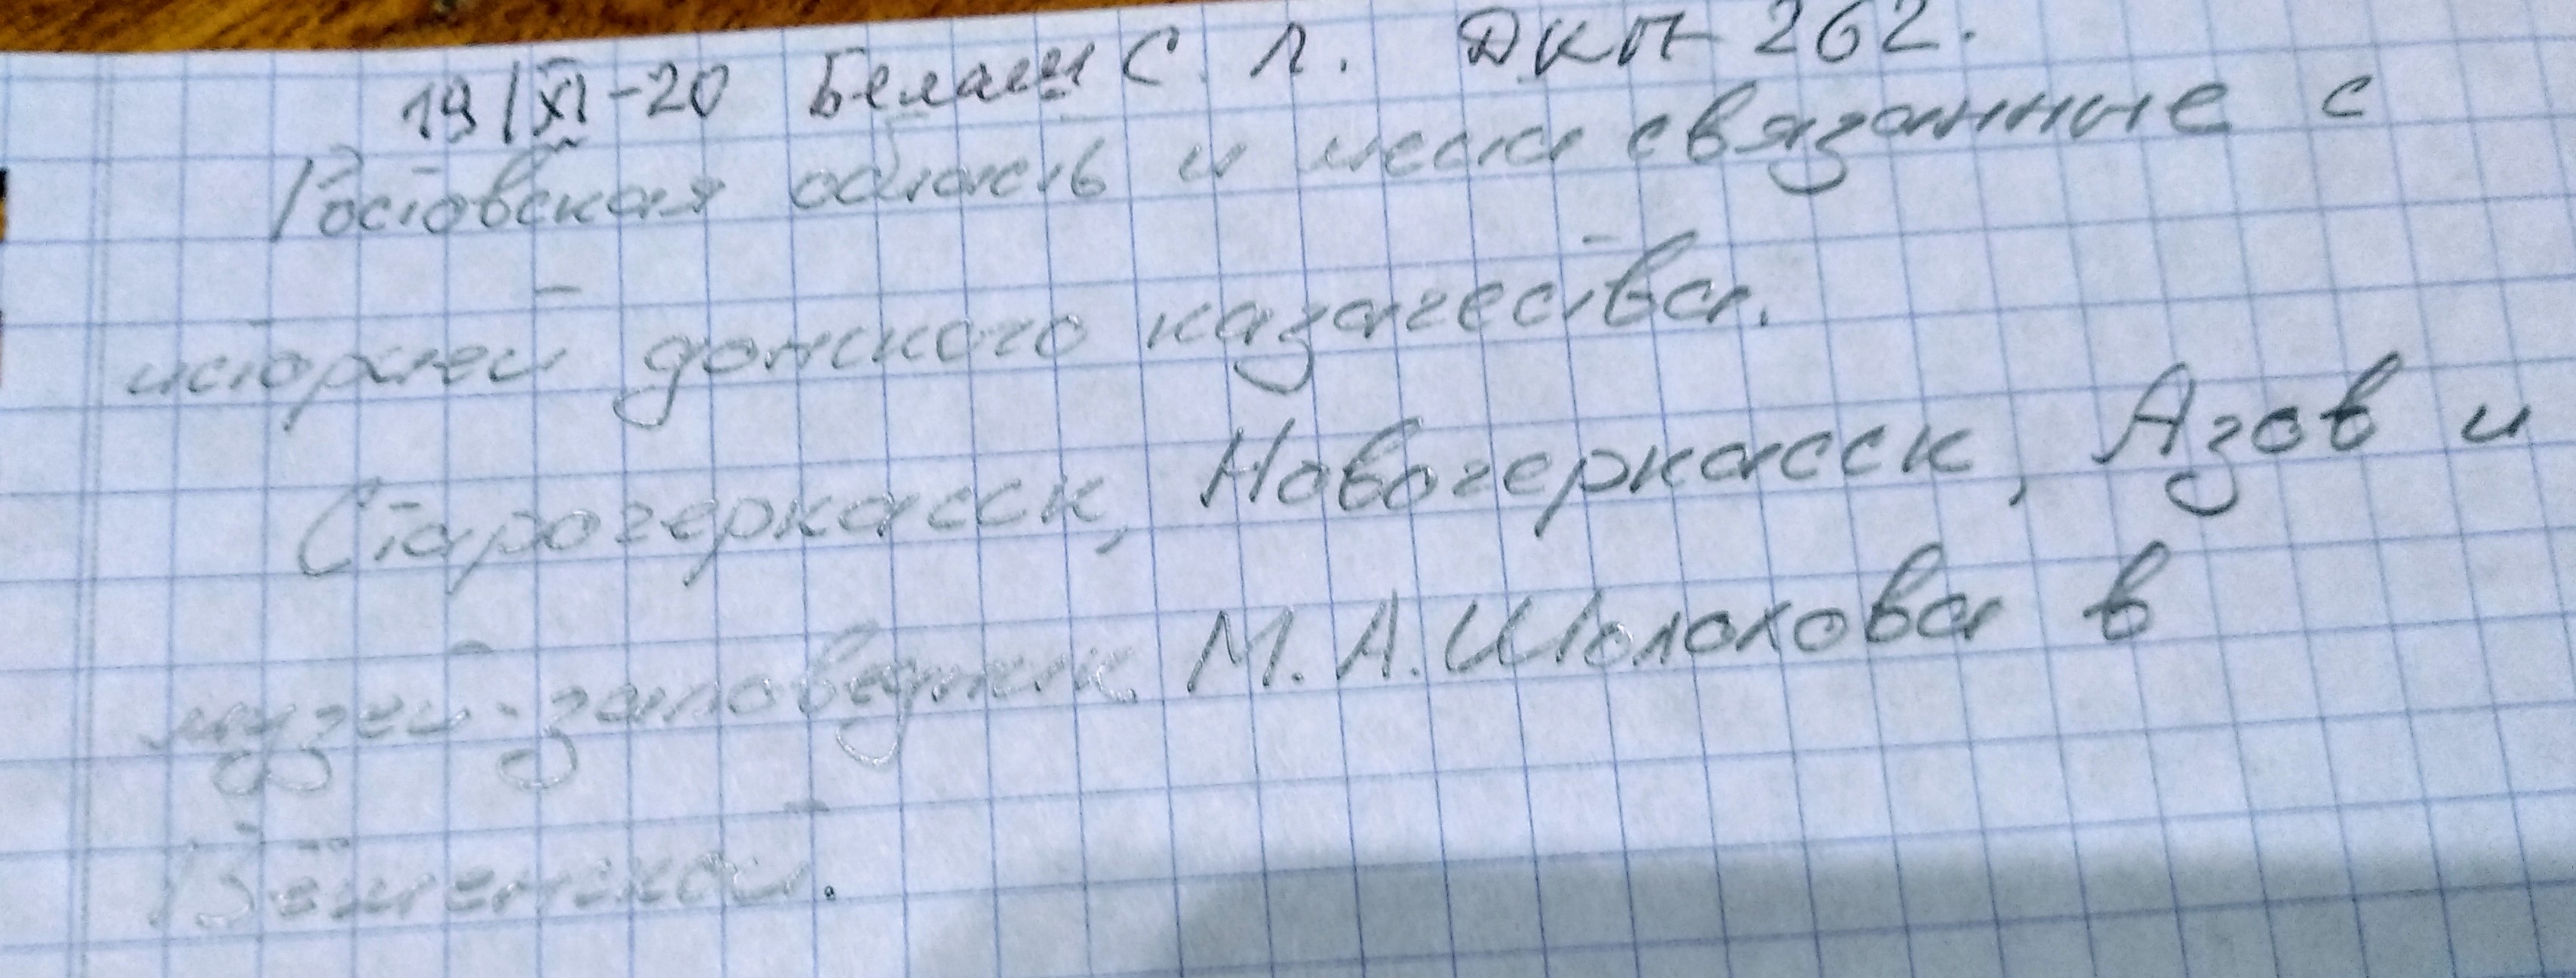 19/XI-20 Белаш С. Л. ДКП-262.
Ростовская область и места связанные с
историей донского казачества.
Старочеркасск, Новочеркасск, Азов и
музей-заповедник М. А. Шолохова в
Вёшенской.